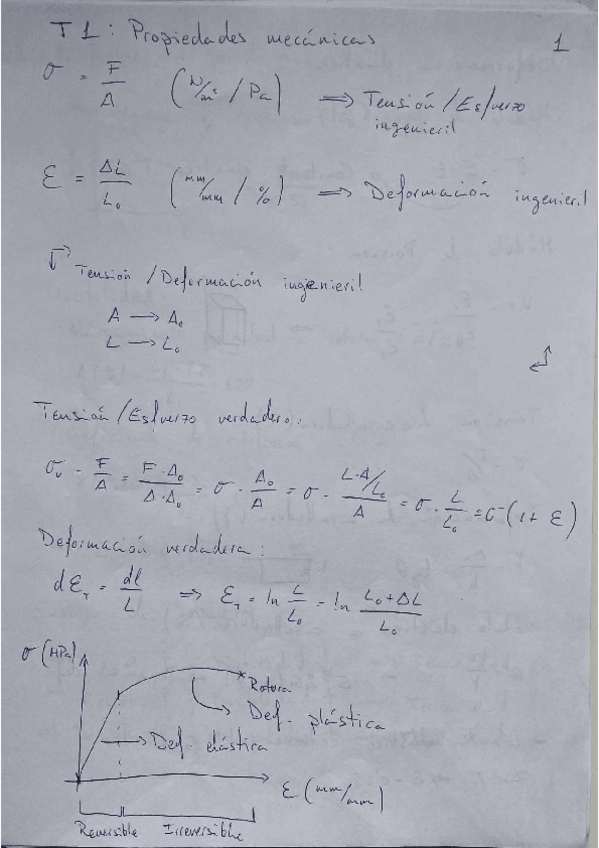 T1: Propiedades mecánicas 1
σ = F/A (N/m² / Pa) ⇒ Tensión/Esfuerzo
ingenieril
ε = ΔL/L₀ (mm/mm / %) ⇒ Deformación ingenieril
Tensión/Deformación ingenieril
A → A₀
L → L₀
Tensión/Esfuerzo verdadero:
σᵥ = F/A = F·A₀/A·A₀ = σ · A₀/A = σ · L·A/L₀/A = σ · L/L₀ = σ(1+ ε)
Deformación verdadera:
dεᵣ = dl/L ⇒ εᵣ = ln L/L₀ = ln L₀+ΔL/L₀
σ (MPa)
Rotura
Def. plástica
Def. elástica
ε (mm/mm)
Reversible Irreversible